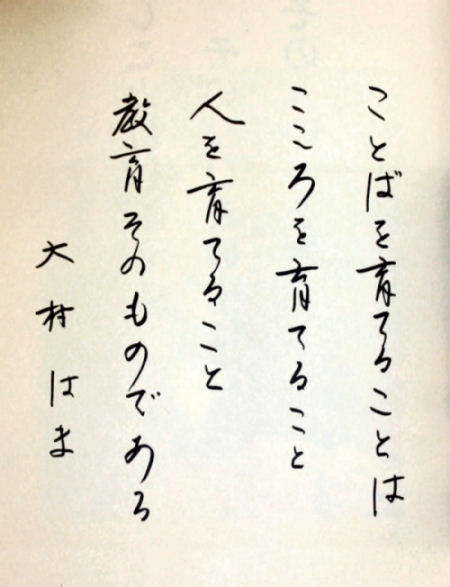 ことばを育てることは
こころを育てること
人を育てること
教育そのものである
大村はま